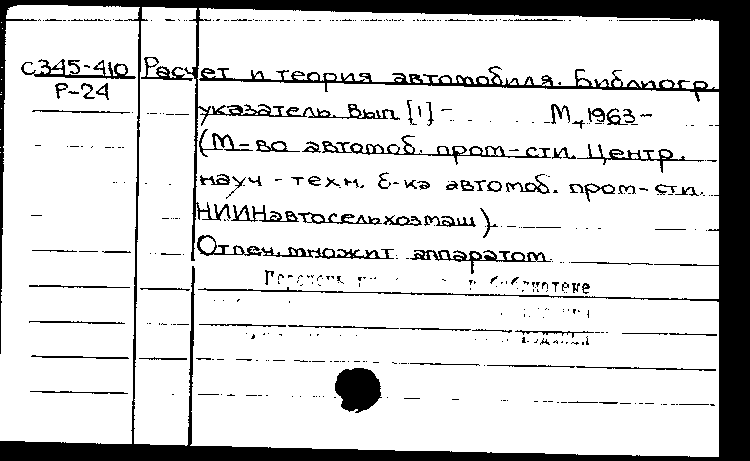 С345-410 Расчет и теория автомобиля. Библиогр.
Р-24
указатель. Вып [1] - М., 1963-
(М-во автомоб. пром-сти. Центр.
науч-техн. б-ка автомоб. пром-сти.
НИИНавтосельхозмаш).
Отпеч. множит. аппаратом
Перечень библиотеке
изданий